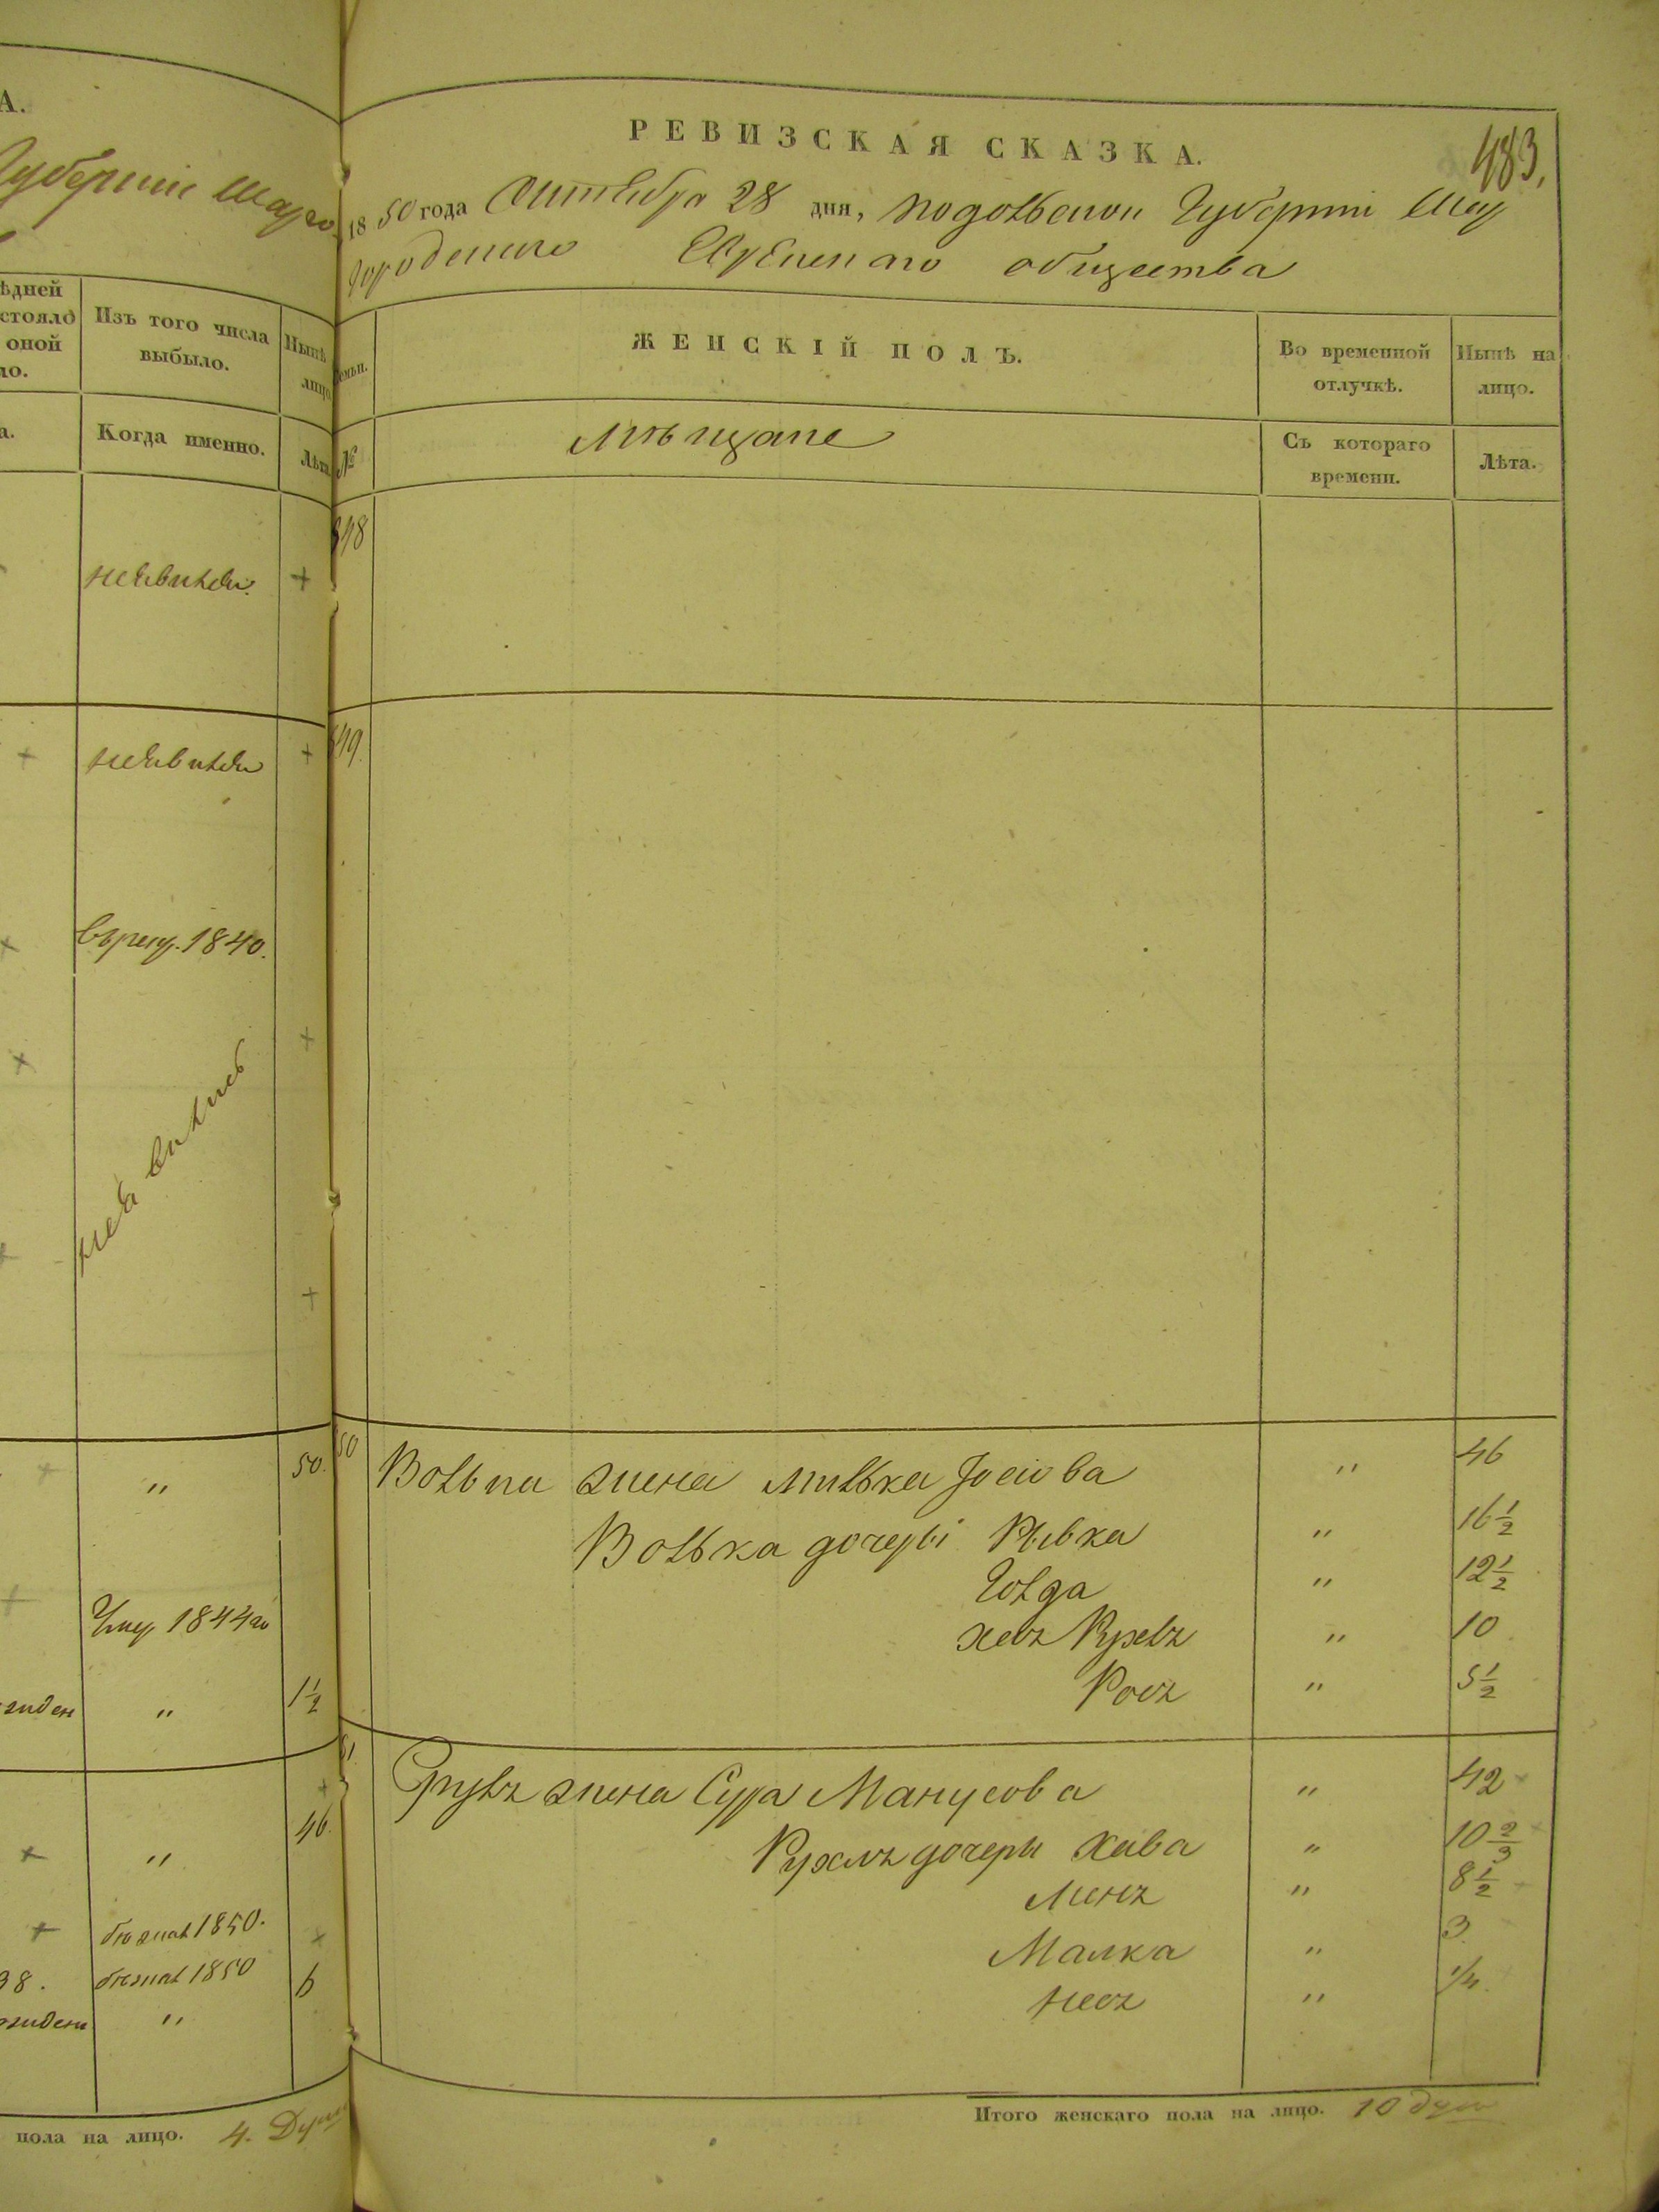 А.
Губерніи Шарго
ѣдней
стояло
оной
ло.
Изъ того числа
выбыло.
Нынѣ
лицо
а.
Когда именно.
Лѣта
неявился
+
+ неявился +
×
1840.
×
+
неявились
+
+
+ " 50.
+
1844го
" 1 1/2
+
+ " 46.
+ 1850. ×
38. 1850 6
"
пола на лицо. 4. Души
РЕВИЗСКАЯ СКАЗКА.
483.
1850 года Октября 28 дня, Подольской Губерніи Шар
городского Еврейскаго общества
семьи.
ЖЕНСКІЙ ПОЛЪ.
Во временной
отлучкѣ.
Нынѣ на
лицо.
№
Мѣщане
Съ котораго
времени.
Лѣта.
548
549.
50 Волька жена Милька Іосіова " 46
Волька дочери Рывка " 16 1/2
Голда " 12 1/2
Рухля " 10
Рося " 5 1/2
51. Сруля жена Сура Манусова " 42
дочери Хава " 10 2/3
" 8 1/2
Малка " 3
Нося " 1/4.
Итого женскаго пола на лицо. 10 душ